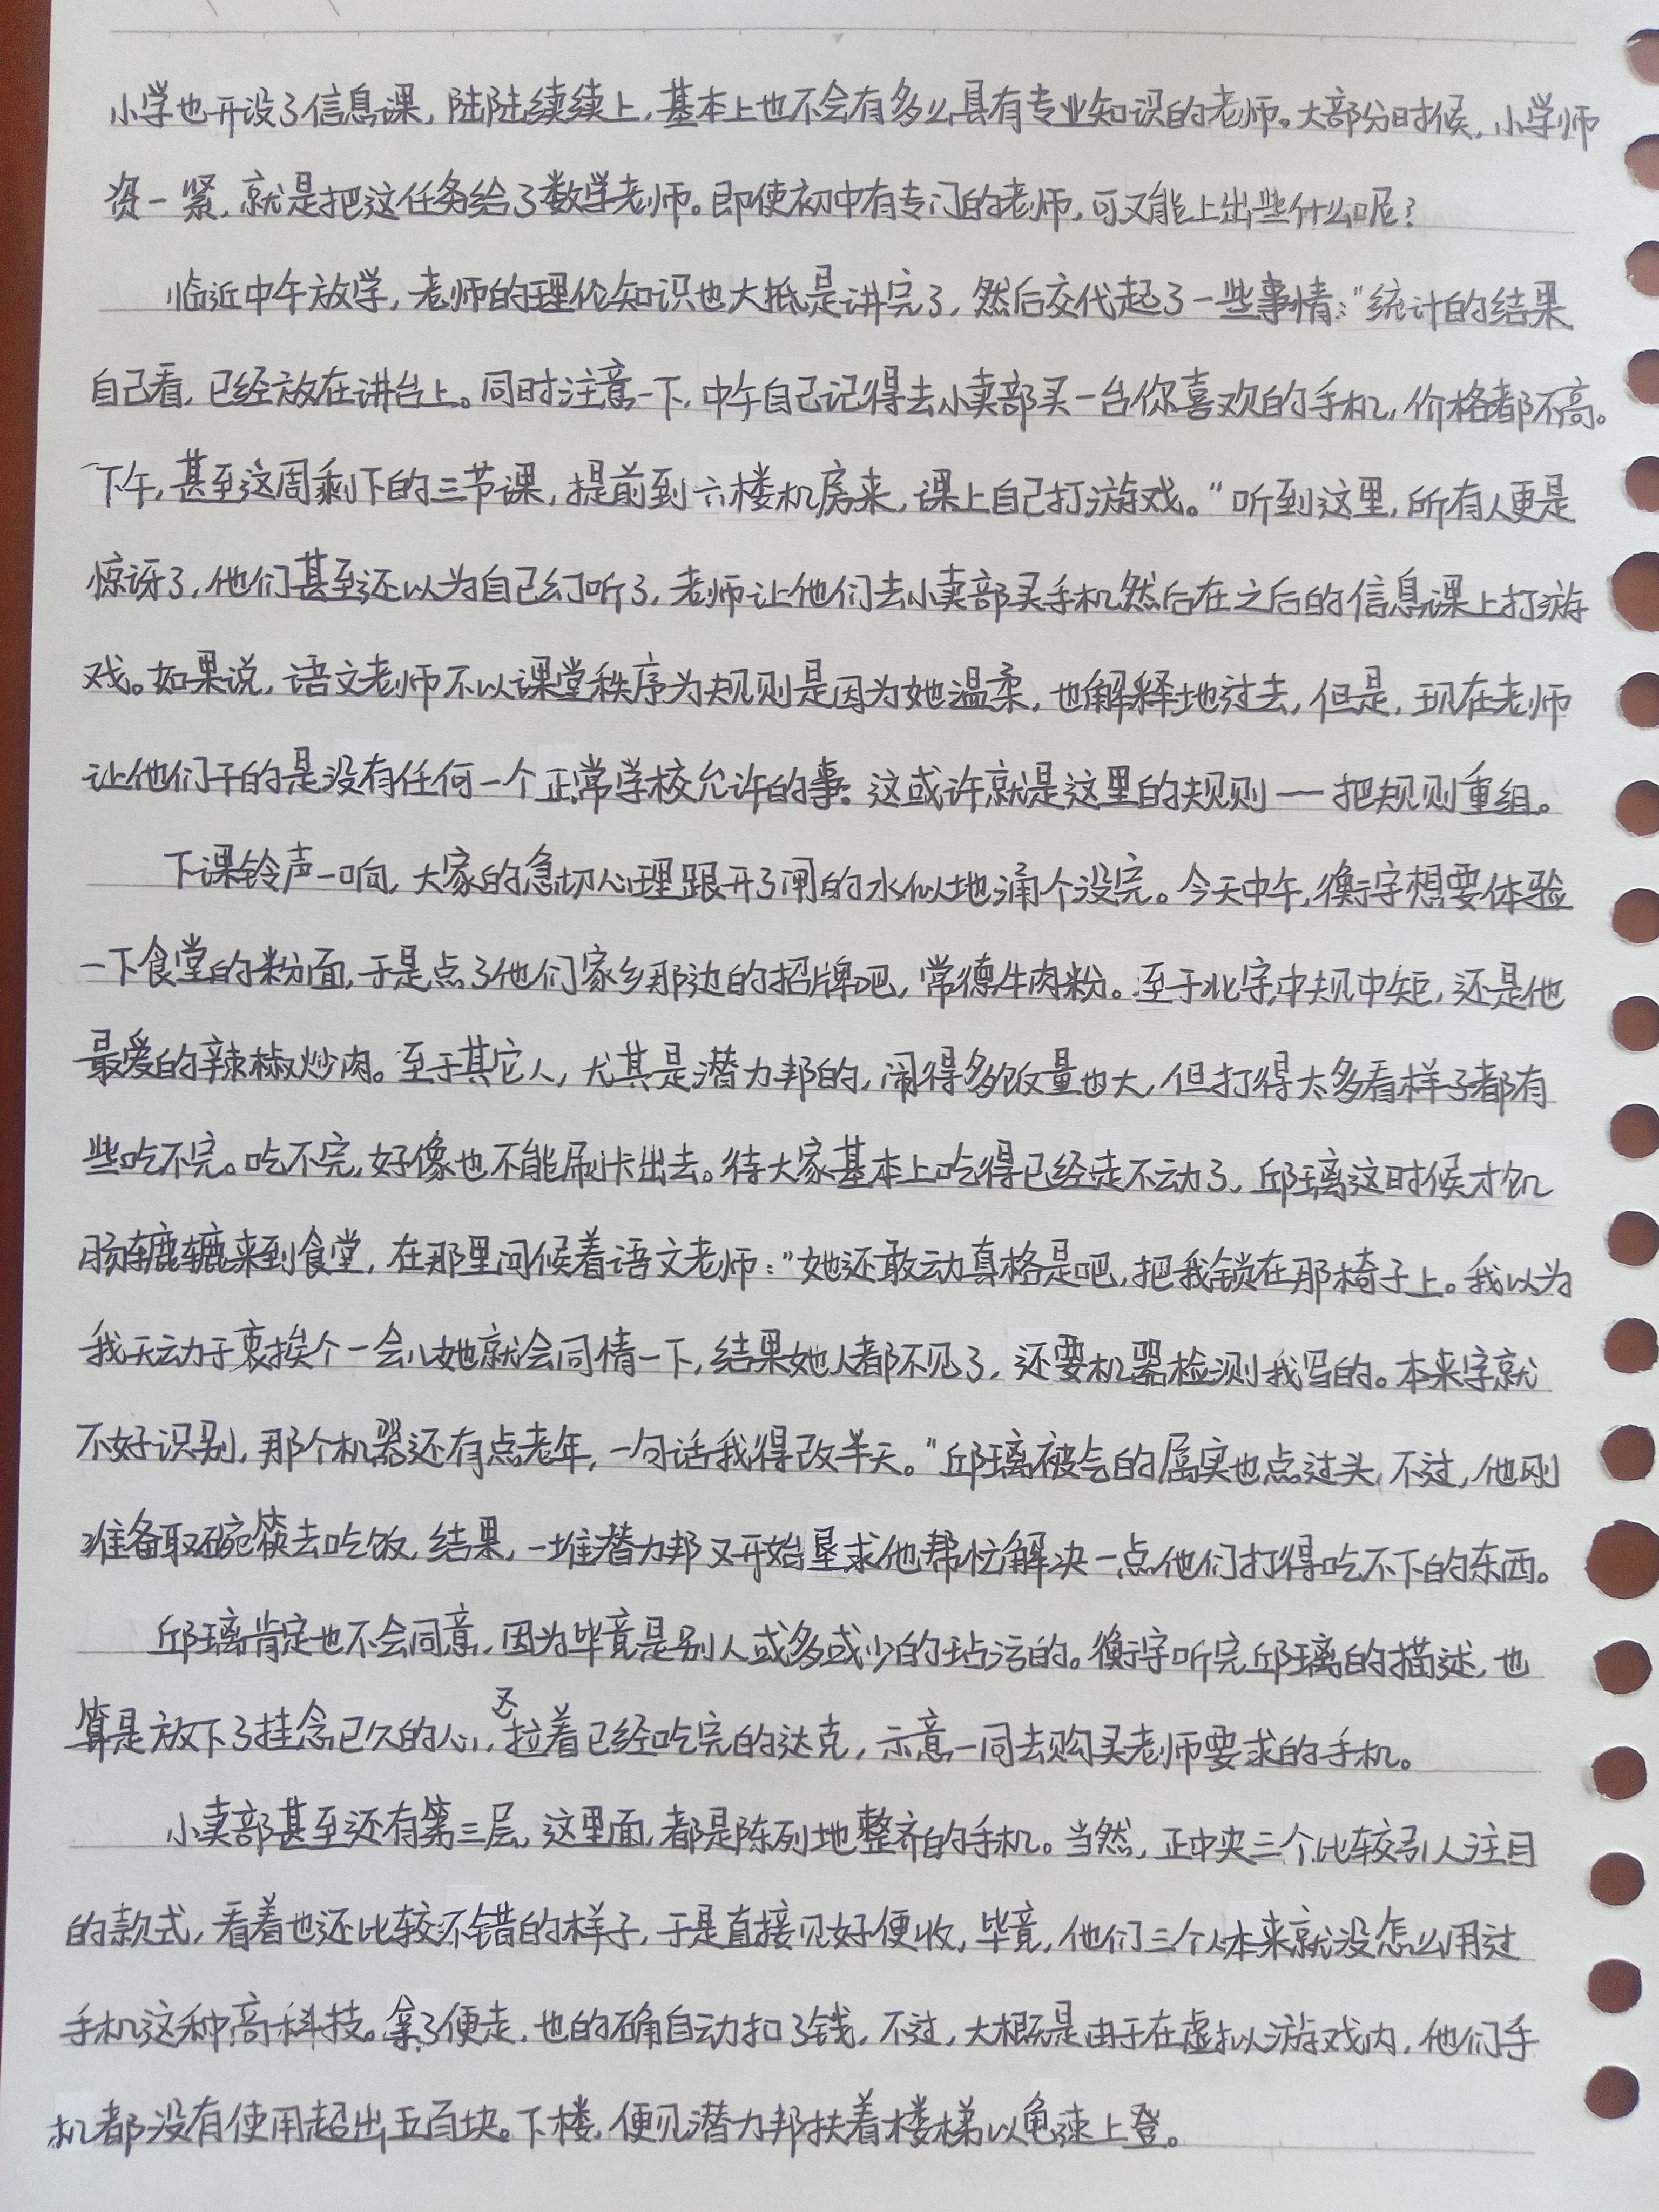 小学也开设了信息课，陆陆续续上，基本上也不会有多么具有专业知识的老师。大部分时候，小学师
资一紧，就是把这任务给了数学老师。即使初中有专门的老师，可又能上出些什么呢？
临近中午放学，老师的理论知识也大抵是讲完了，然后交代起了一些事情：“统计的结果
自己看，已经放在讲台上。同时注意一下，中午自己记得去小卖部买一台你喜欢的手机，价格都不高。
下午，甚至这周剩下的三节课，提前到六楼机房来，课上自己打游戏。”听到这里，所有人更是
惊讶了，他们甚至还以为自己幻听了，老师让他们去小卖部买手机然后在之后的信息课上打游
戏。如果说，语文老师不以课堂秩序为规则是因为她温柔，也解释地过去，但是，现在老师
让他们干的是没有任何一个正常学校允许的事。这或许就是这里的规则——把规则重组。
下课铃声一响，大家的急切心理跟开了闸的水似地涌个没完。今天中午，衡宇想要体验
一下食堂的粉面，于是点了他们家乡那边的招牌吧，常德牛肉粉。至于北宇，中规中矩，还是他
最爱的辣椒炒肉。至于其它人，尤其是潜力邦的，闹得多饭量也大，但打得太多看样子都有
些吃不完。吃不完，好像也不能刷卡出去。待大家基本上吃得已经走不动了，邱璃这时候才饥
肠辘辘来到食堂，在那里问候着语文老师：“她还敢动真格是吧，把我锁在那椅子上。我以为
我无动于衷挨个一会儿她就会同情一下，结果她人都不见了，还要机器检测我写的。本来字就
不好识别，那个机器还有点老年，一句话我得改半天。”邱璃被气的属实也点过头，不过，他刚
准备取碗筷去吃饭，结果，一堆潜力邦又开始恳求他帮忙解决一点他们打得吃不下的东西。
邱璃肯定也不会同意，因为毕竟是别人或多或少的玷污的。衡宇听完邱璃的描述，也
算是放下了挂念已久的心，又拉着已经吃完的达克，示意一同去购买老师要求的手机。
小卖部甚至还有第三层，这里面，都是陈列地整齐的手机。当然，正中央三个比较引人注目
的款式，看着也还比较不错的样子，于是直接见好便收，毕竟，他们三个人本来就没怎么用过
手机这种高科技。拿了便走，也的确自动扣了钱，不过，大概是由于在虚拟游戏内，他们手
机都没有使用超出五百块。下楼，便见潜力邦扶着楼梯以龟速上登。